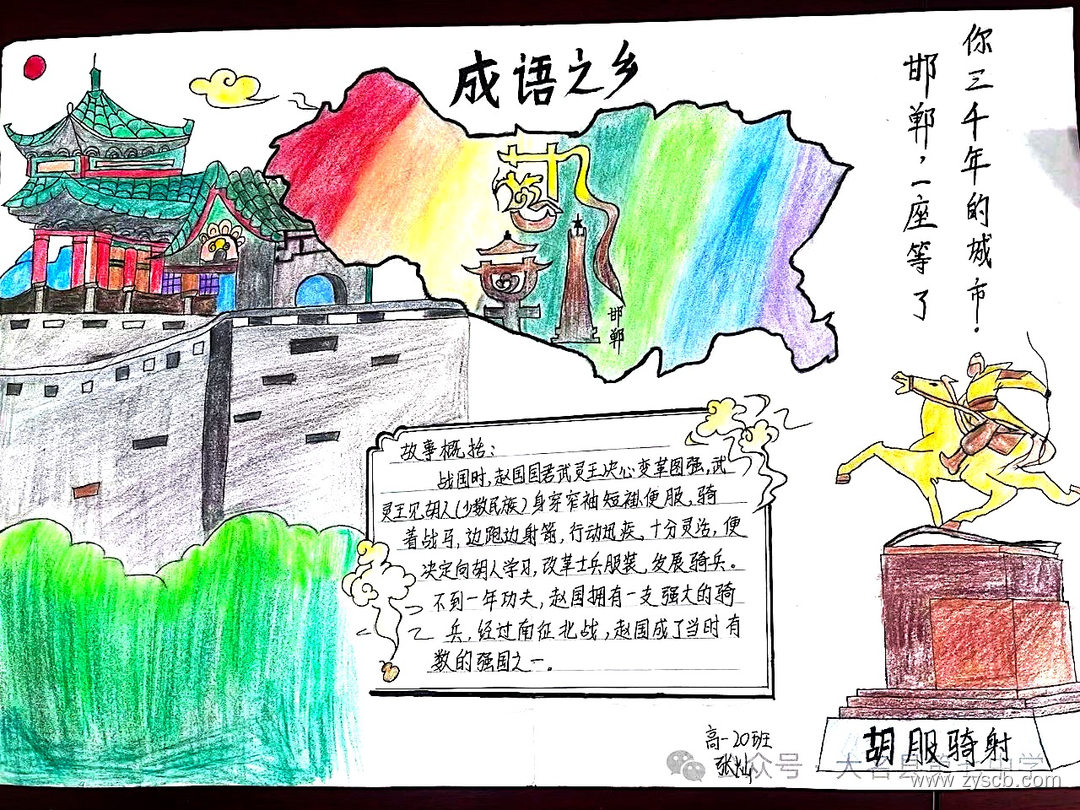 成语之乡
你三千年的城市.
邯郸，一座等了
邯郸
故事概括：
战国时，赵国国君武灵王决心变革图强，武
灵王见胡人(少数民族)身穿窄袖短褂便服，骑
着战马，边跑边射箭，行动迅疾，十分灵活，便
决定向胡人学习，改革士兵服装，发展骑兵。
不到一年功夫，赵国拥有一支强大的骑
兵，经过南征北战，赵国成了当时有
数的强国之一。
高一20班
张灿
胡服骑射
www.zyscb.com